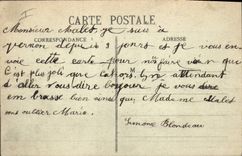 CARTE POSTALE
CORRESPONDANCE ADRESSE
Monsieur Malet je suis à
vernon depuis 3 jours et je vous en
voie cette carte pour vous faire voir que
C'est plus joli que Cahors. En attendant
d'aller vous dire bonjour je vous
embrasse bien ainsi que Madame Males
Marie.
Simone Blondeau